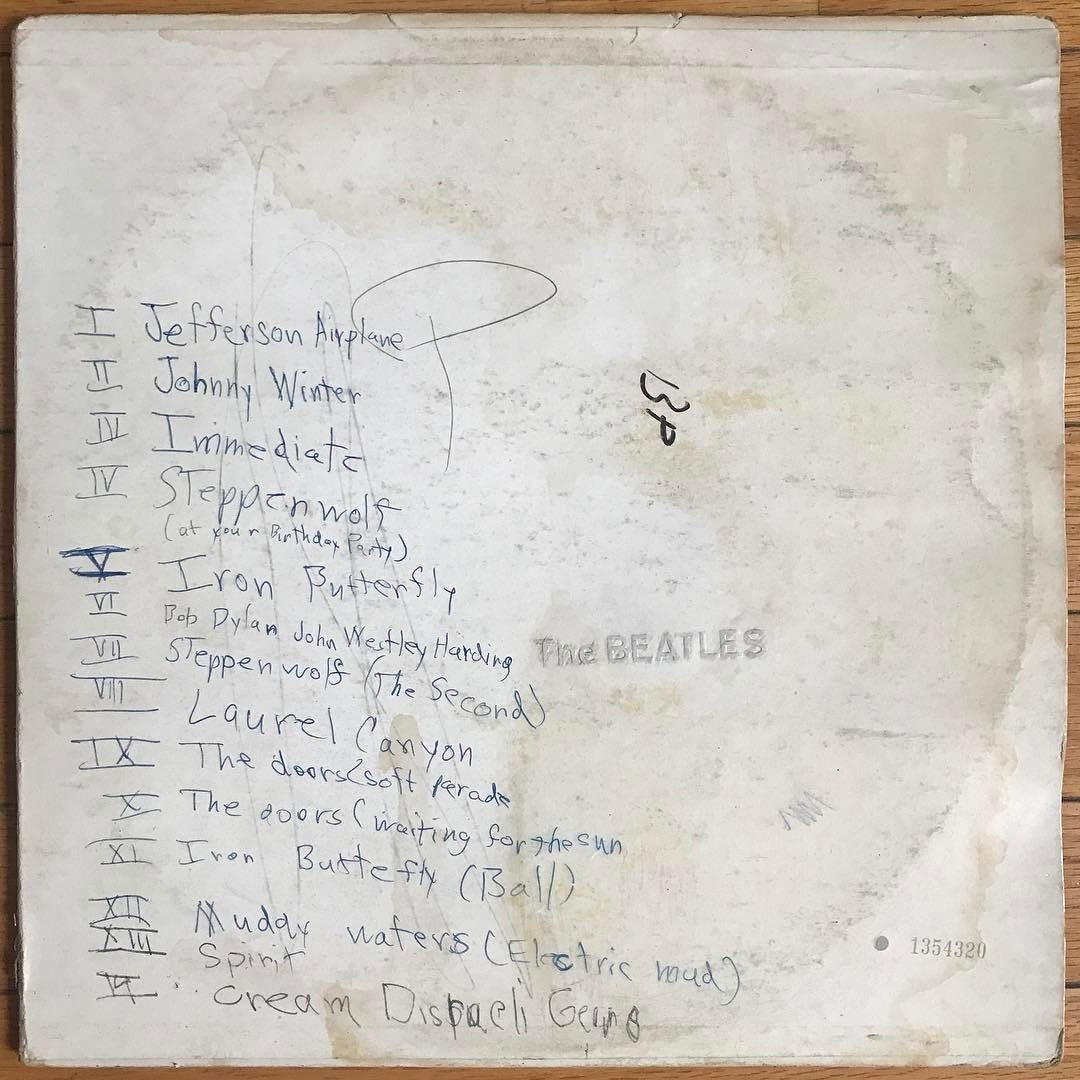 I Jefferson Airplane
II Johnny Winter
III Immediate
IV STeppenwolf
(at your Birthday Party)
V Iron Butterfly
VI Bob Dylan John Westley Harding
VII STeppenwolf (The Second)
VIII Laurel Canyon
IX The doors (soft parade
X The doors (waiting for the sun
XI Iron Butterfly (Ball)
XII Muddy waters (Electric mud)
XIII Spirit
Cream Disraeli Gears
The BEATLES
1354320